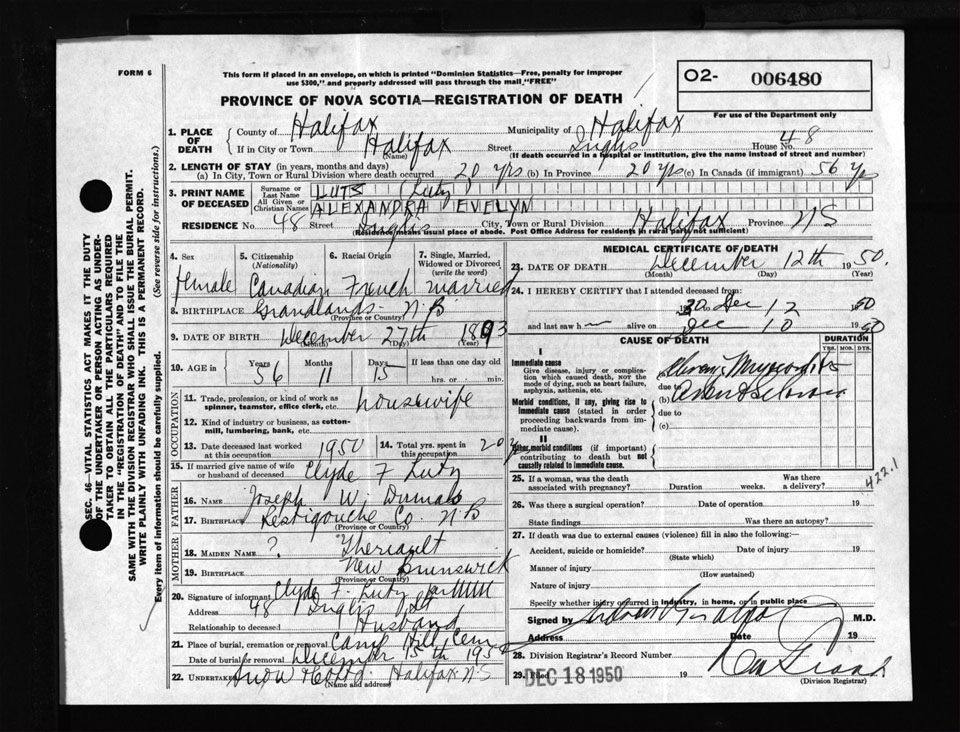 FORM 6
This form if placed in an envelope, on which is printed "Dominion Statistics—Free, penalty for improper
use $300," and properly addressed will pass through the mail "FREE"
O2- 006480
For use of the Department only
PROVINCE OF NOVA SCOTIA—REGISTRATION OF DEATH
1. PLACE OF DEATH
County of Halifax Municipality of Halifax
If in City or Town Halifax Street Inglis House No. 48
(Name) (If death occurred in a hospital or institution, give the name instead of street and number)
2. LENGTH OF STAY (in years, months and days)
(a) In City, Town or Rural Division where death occurred 20 yrs (b) In Province 20 yrs (c) In Canada (if immigrant) 56 yrs
3. PRINT NAME OF DECEASED
Surname or Last Name LUTS (Lutz)
All Given or Christian Names ALEXANDRA EVELYN
RESIDENCE No. 48 Inglis City, Town or Rural Division Halifax Province NS
(Residence means usual place of abode. Post Office Address for residents in rural parts not sufficient)
4. Sex 5. Citizenship (Nationality) 6. Racial Origin 7. Single, Married, Widowed or Divorced (write the word)
Female Canadian French married
8. BIRTHPLACE N.B
(Province or Country)
9. DATE OF BIRTH December 27th 1893
(Month) (Day) (Year)
10. AGE in Years 56 Months 11 Days 15 If less than one day old
hrs. or min.
OCCUPATION
11. Trade, profession, or kind of work as spinner, teamster, office clerk, etc. housewife
12. Kind of industry or business, as cotton-mill, lumbering, bank, etc.
13. Date deceased last worked at this occupation 1950 14. Total yrs. spent in this occupation 20 y
15. If married give name of wife or husband of deceased Clyde F Lutz
FATHER
16. Name Joseph W.
17. Birthplace Restigouche Co. N.B
(Province or Country)
MOTHER
18. MAIDEN NAME ? Theriault
19. BIRTHPLACE New Brunswick
(Province or Country)
20. Signature of informant Clyde F. Lutz
Address 48 Inglis St
Relationship to deceased Husband
21. Place of burial, cremation or removal Camp Hill Cem
Date of burial or removal December 15th 1950
22. Undertaker Snow & Co Ltd. Halifax N.S
(Name and address)
MEDICAL CERTIFICATE OF DEATH
23. DATE OF DEATH December 12th 1950.
(Month) (Day) (Year)
24. I HEREBY CERTIFY that I attended deceased from:
Dec 12 1950
and last saw h alive on Dec 10 1950
CAUSE OF DEATH DURATION
YRS. MOS. DYS.
I
Immediate cause
Give disease, injury or complication which caused death, not the mode of dying, such as heart failure, asphyxia, asthenia, etc.
due to
(b)
Morbid conditions, if any, giving rise to immediate cause (stated in order proceeding backwards from immediate cause).
due to
(c)
II
Other morbid conditions (if important) contributing to death but not causally related to immediate cause.
422.1
25. If a woman, was the death associated with pregnancy? Duration weeks. Was there a delivery?
26. Was there a surgical operation? Date of operation 19
State findings Was there an autopsy?
27. If death was due to external causes (violence) fill in also the following:—
Accident, suicide or homicide? Date of injury 19
(State which)
Manner of injury
(How sustained)
Nature of injury
Specify whether injury occurred in industry, in home, or in public place
Signed by M.D.
Address Date 19
28. Division Registrar's Record Number
29. Filed DEC 18 1950 19
(Division Registrar)
SEC. 46—VITAL STATISTICS ACT MAKES IT THE DUTY
OF THE UNDERTAKER OR PERSON ACTING AS UNDERTAKER TO OBTAIN ALL THE PARTICULARS REQUIRED
IN THE "REGISTRATION OF DEATH" AND TO FILE THE
SAME WITH THE DIVISION REGISTRAR WHO SHALL ISSUE THE BURIAL PERMIT.
WRITE PLAINLY WITH UNFADING INK. THIS IS A PERMANENT RECORD.
Every item of information should be carefully supplied. (See reverse side for instructions.)